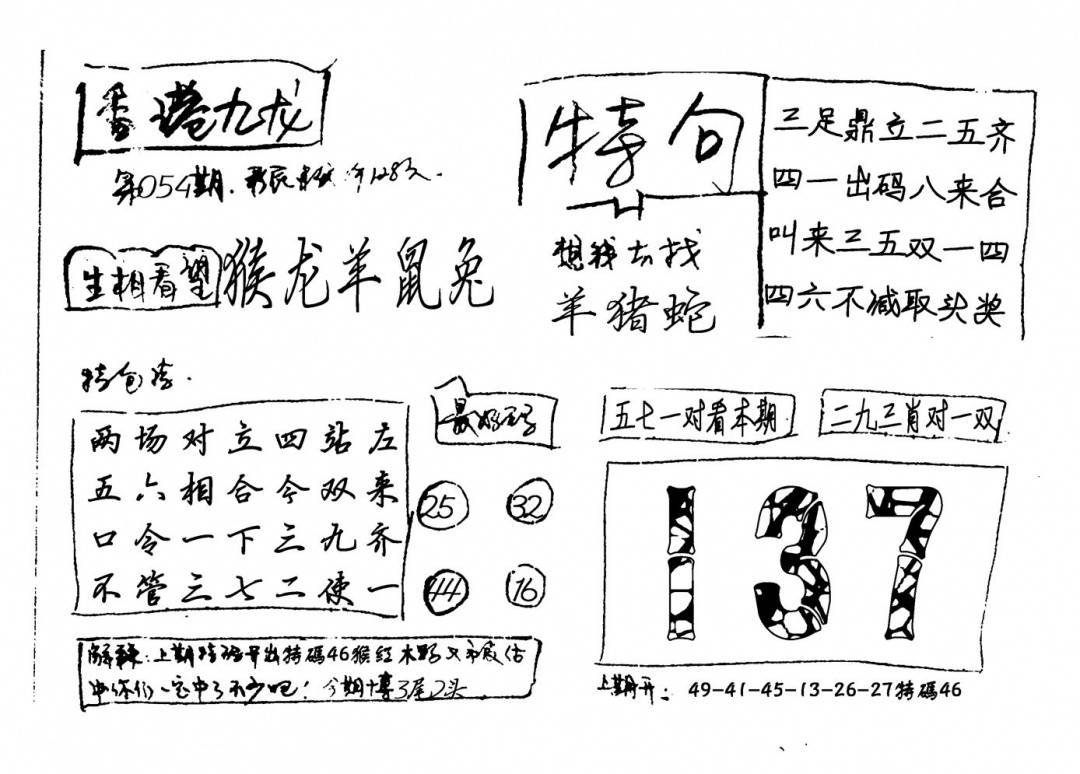 香港九龙
第054期.
生相看望
猴龙羊鼠兔
特句
想我去找
羊猪蛇
三足鼎立二五齐
四一出码八来合
叫来三五双一四
四六不减取头奖
特包
两场对立四站左
五六相合今双来
口令一下三九齐
不管三七二使一
25 32
44 16
五七一对看本期
二九三肖对一双
137
上期特码开出特碼46猴红木野又
你们一定中了不少吧!今期博3尾2头
上期开: 49-41-45-13-26-27特碼46